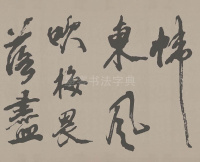 帏
東風
吹梅畏
落盡